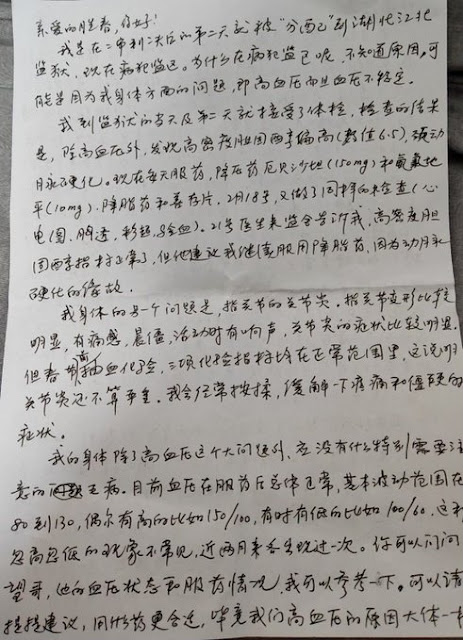 亲爱的胜春，你好！
我是在二审判决后的第二天就被“分配”到湖北江北
监狱，现在病犯监区。为什么在病犯监区呢，不知道原因，可
能是因为我身体方面的问题，即高血压而且血压不稳定。
我到监狱的当天及第二天就接受了体检，检查的结果
是，除高血压外，发现高密度胆固醇偏高（数值6.5），颈动
脉硬化。现在每天服药，降压药厄贝沙坦（150mg）和氨氯地
平（10mg）、降脂药和善存片。2月18号，又做了同样的检查（心
电图，胸透，彩超，验血）。21号医生来监舍告诉我，高密度胆
固醇指标正常了，但他建议我继续服用降脂药，因为动脉
硬化的缘故。
我身体的另一个问题是，指关节的关节炎。指关节变形比较
明显，有痛感，晨僵，活动时有响声，关节炎的症状比较明显。
但看抽血化验，三项化验指标均在正常范围里，这说明
关节炎还不算严重。我会经常按揉，缓解一下疼痛和僵硬的
症状。
我的身体除了高血压这个大问题外，应没有什么特别需要注
意的毛病。目前血压在服药后总体正常，基本波动范围在
80到130，偶尔有高的比如150/100，有时有低的比如100/60，这种
忽高忽低的现象不常见，近两月来各出现过一次。你可以问问
望哥，他的血压状态和服药情况，我可以参考一下。可以请
提提建议，用什么药更合适，毕竟我们高血压的原因大体一